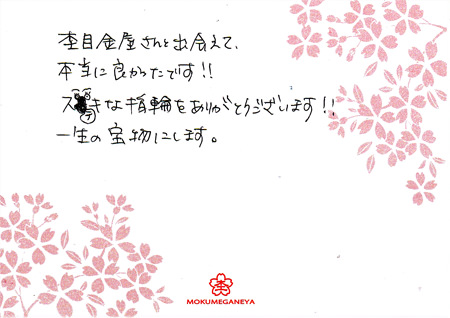 杢目金屋さんと出会えて、
本当に良かったです!!
ステキな指輪をありがとうございます!!
一生の宝物にします。
MOKUMEGANEYA